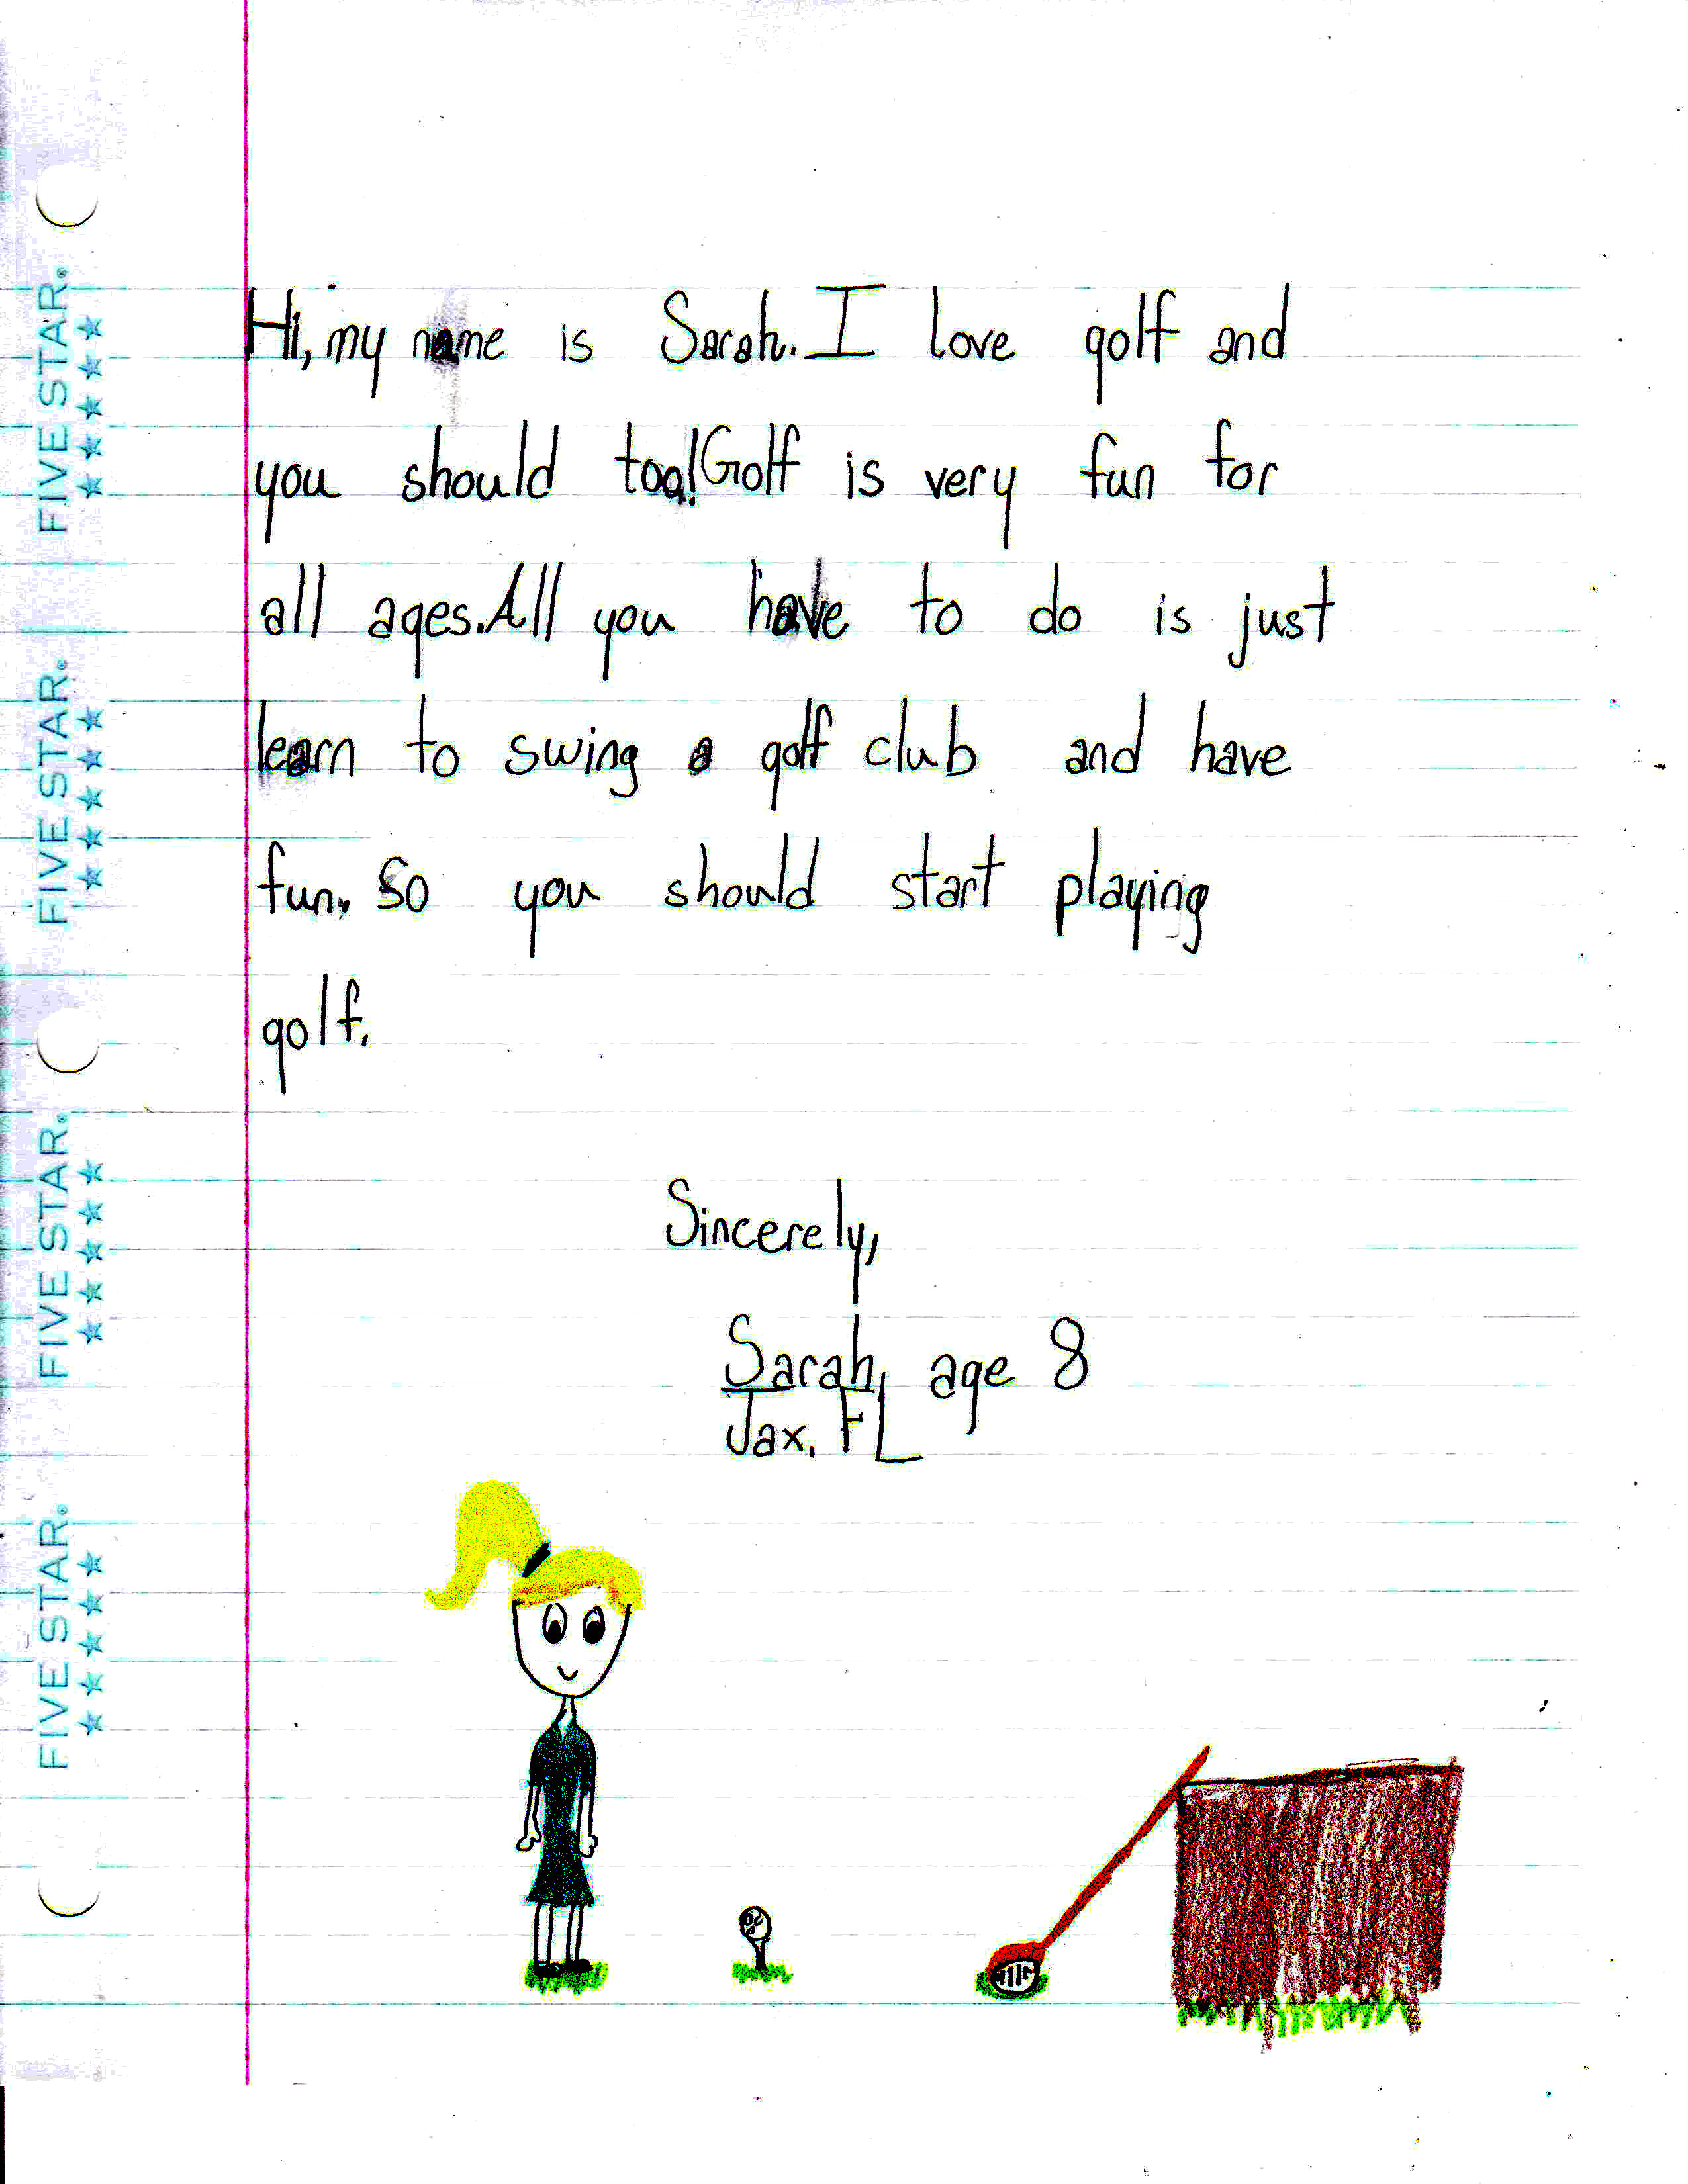 Hi, my name is Sarah. I love golf and
you should too! Golf is very fun for
all ages. All you have to do is just
learn to swing a golf club and have
fun. So you should start playing
golf.
Sincerely,
Sarah, age 8
Jax. FL
FIVE STAR.
FIVE STAR.
FIVE STAR.
FIVE STAR.